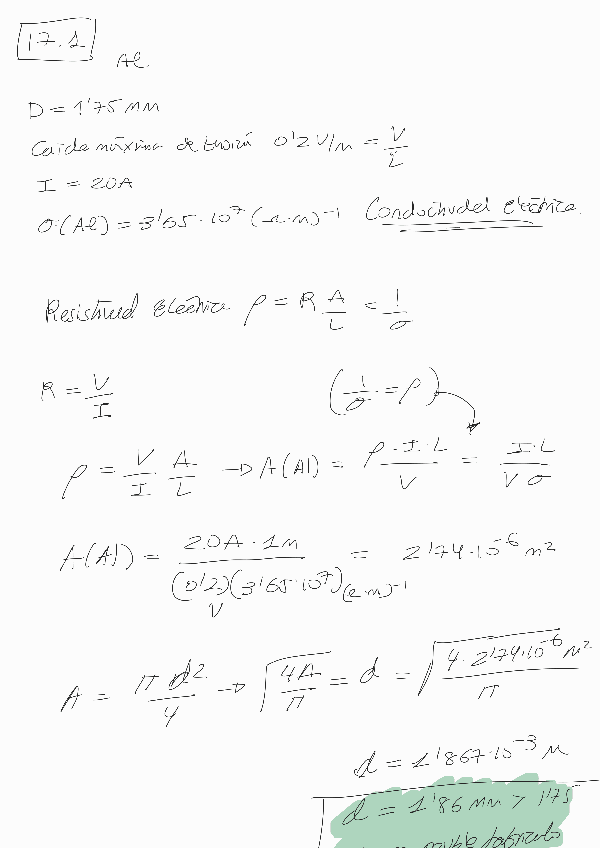 17.1
Al.
D = 1'75 mm
Caida máxima de tensión 0'2 V/m = V/L
I = 20A
σ(Al) = 3'65·10⁷ (Ω·m)⁻¹ Conductividad eléctrica.
Resistividad Eléctrica ρ = R A/L = 1/σ
R = V/I (1/σ = ρ)
ρ = V/I A/L → A(Al) = ρ·I·L/V = I·L/V σ
A(Al) = 20A·1m/(0'2)(3'65·10⁷)(Ω·m)⁻¹ = 2'74·10⁻⁶ m²
V
A = π d²/4 → √4A/π = d = √4·2'74·10⁻⁶ m²/π
d = 1'867·10⁻³ m
d = 1'86 mm > 1'75